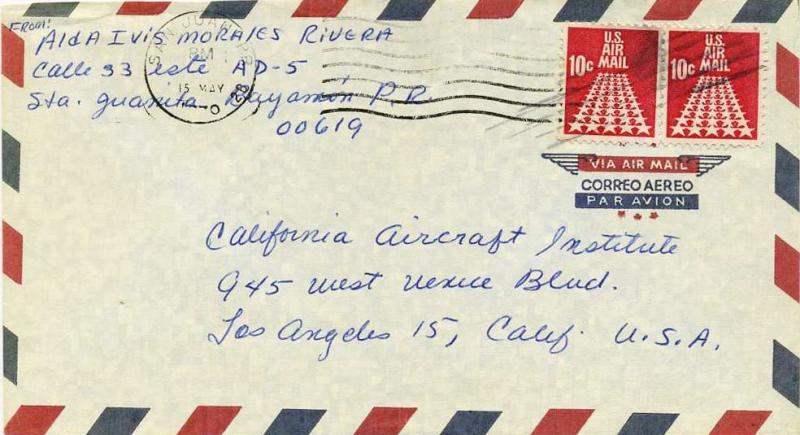 FROM:
AIDA IVIS MORALES RIVERA
Calle 33 este AD-5
Sta. Juanita Bayamón P.R.
00619
SAN JUAN, P.R.
PM
15 MAY
U.S.
AIR
MAIL
10c
U.S.
AIR
MAIL
10c
VIA AIR MAIL
CORREO AEREO
PAR AVION
California Aircraft Institute
945 West Venice Blvd.
Los Angeles 15, Calif. U.S.A.